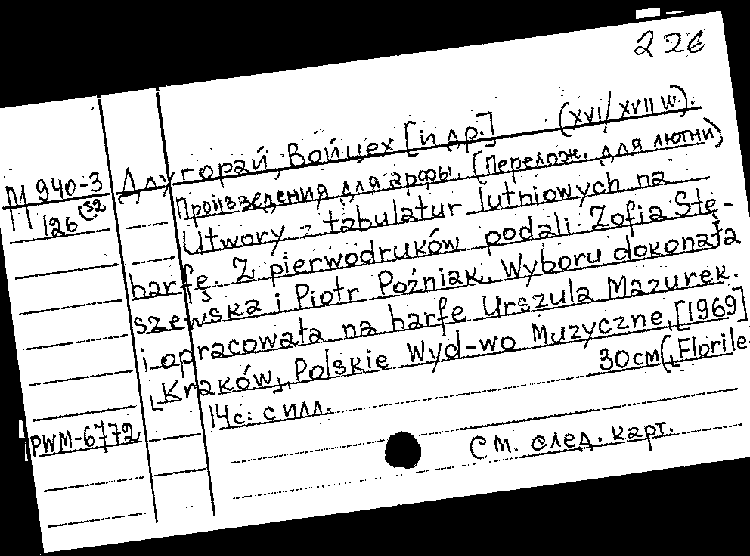 226
Длугорай, Войцех [и др.] (XVI/XVII w.).
М 940-3
126
Произведения для арфы. (Перелож. для лютни)
Utwory z tabulatur lutniowych na
harfę. Z pierwodruków podali Zofia Stę-
szewska i Piotr Poźniak. Wyboru dokonała
i opracowała na harfę Urszula Mazurek.
[Kraków], Polskie Wyd-wo Muzyczne, [1969]
14 с. с илл. 30 см (Florile-
PWM-6772
См. след. карт.